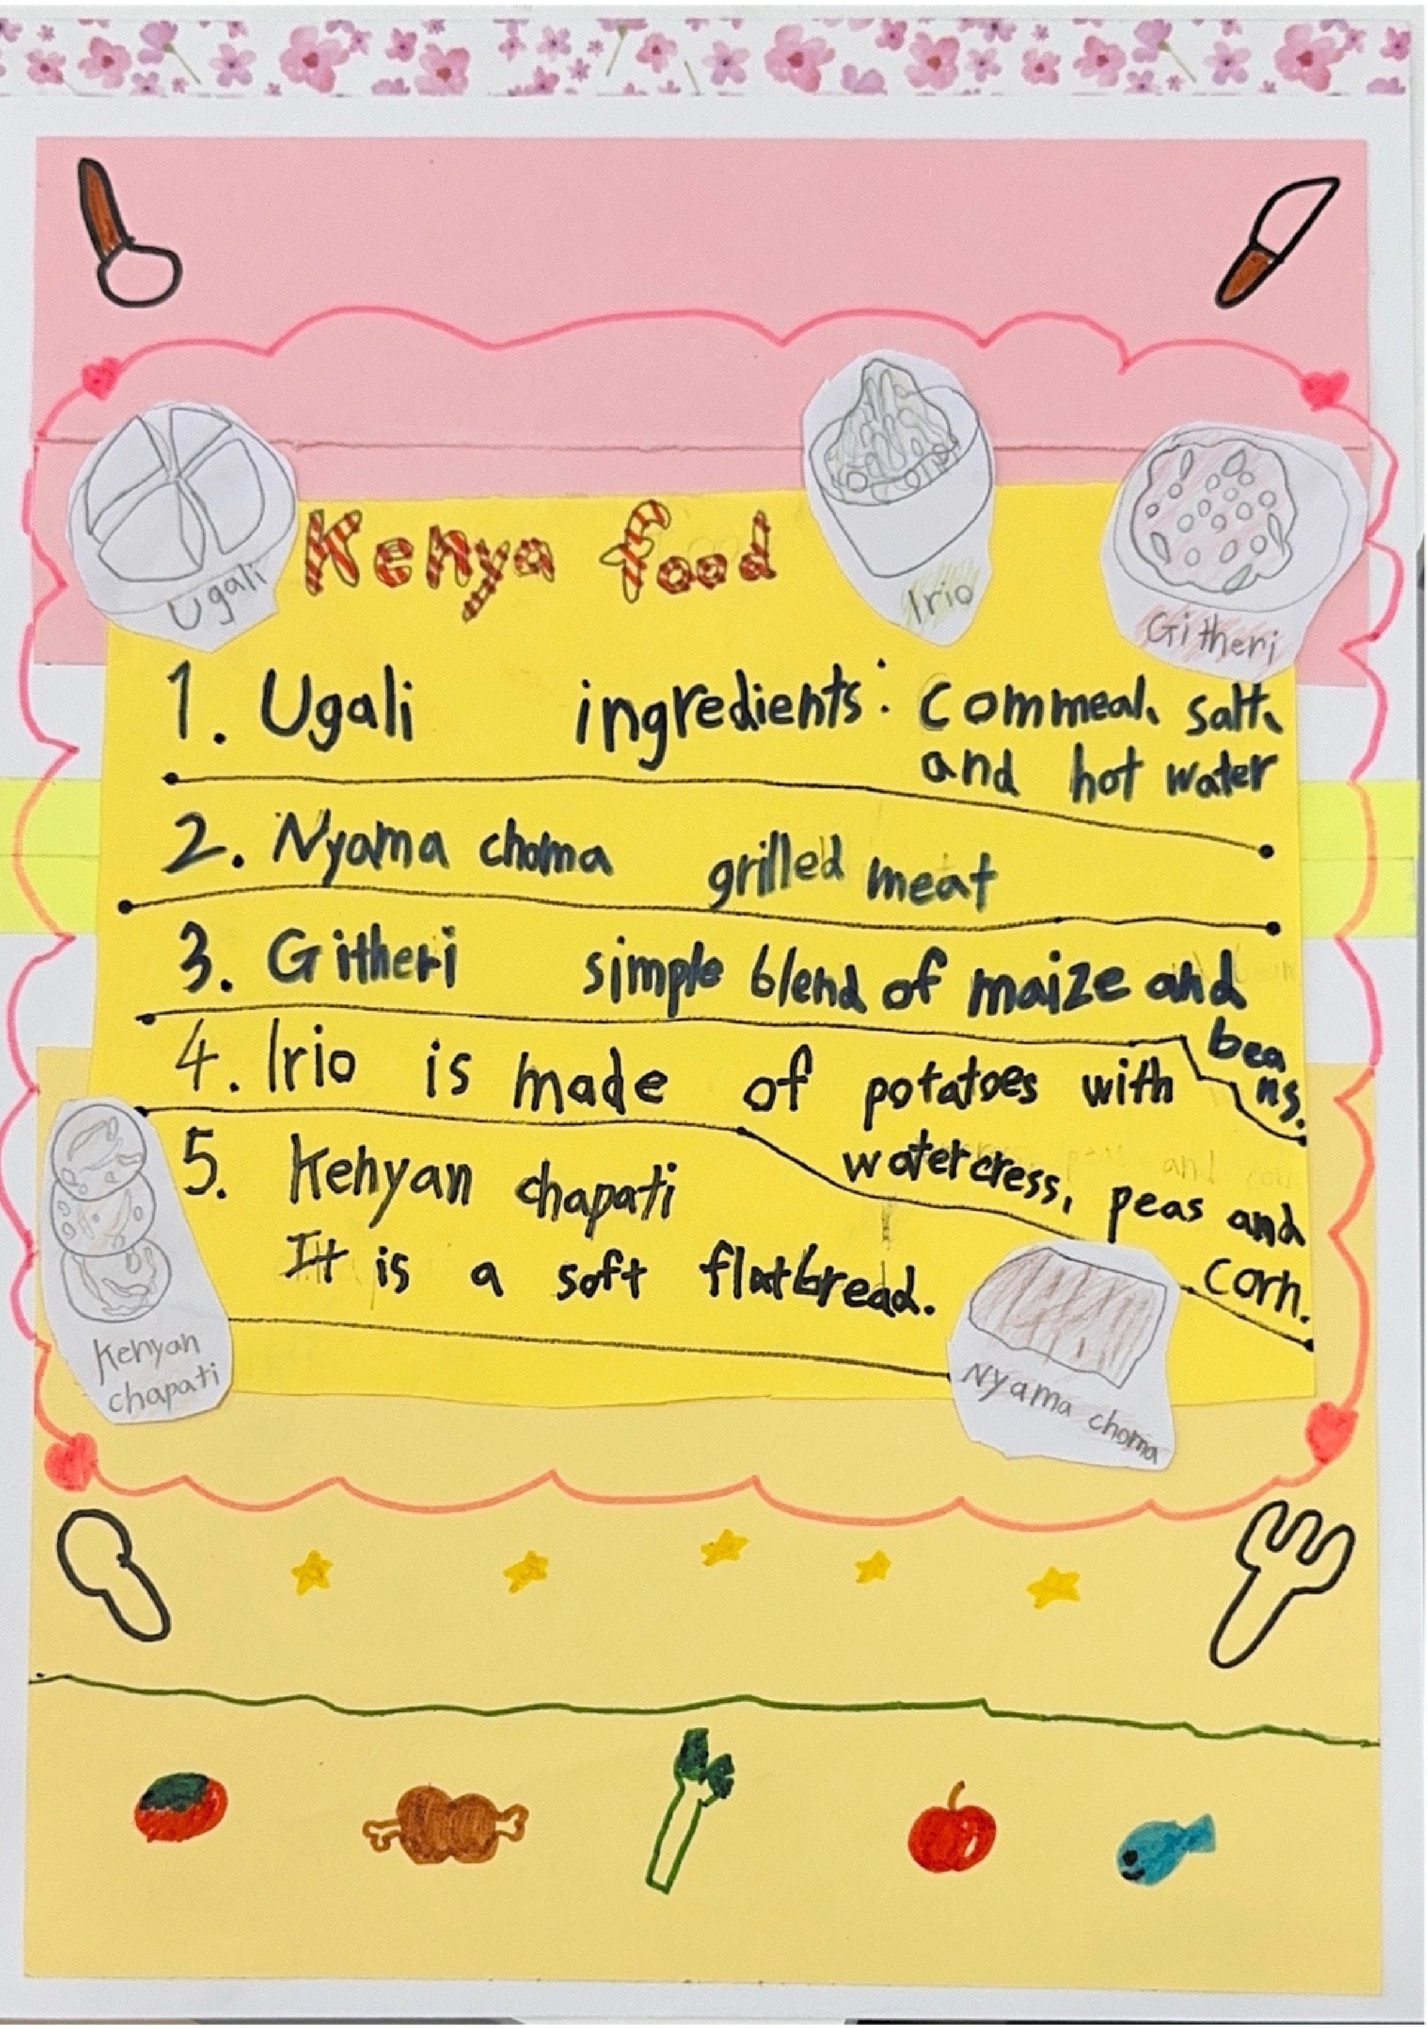 Kenya food
Ugali
Irio
Githeri
1. Ugali ingredients: Commeal, salt,
and hot water
2. Nyama choma grilled meat
3. Githeri simple blend of maize and
bea
ns.
4. Irio is made of potatoes with
watercress, peas and
corn.
5. Kenyan chapati
It is a soft flatbread.
Kenyan
chapati
Nyama choma